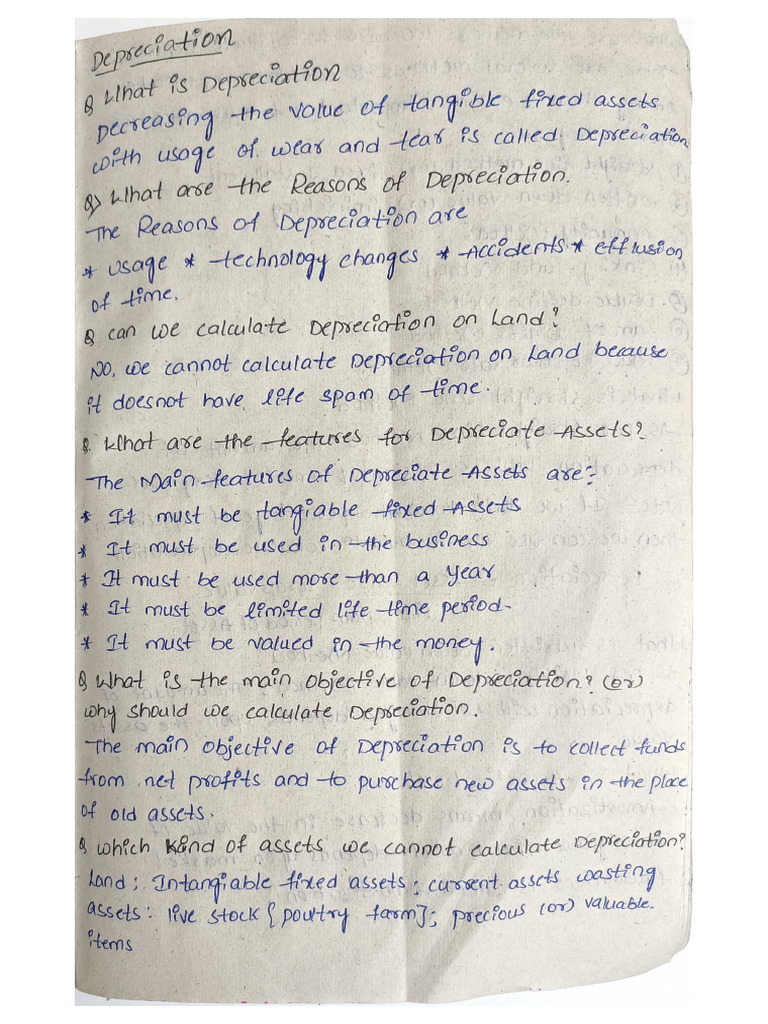 Depreciation
Q What is Depreciation
Decreasing the value of tangible fixed assets
with usage of wear and tear is called Depreciation
Q> What are the Reasons of Depreciation.
The Reasons of Depreciation are
* usage * technology changes * Accidents * efflusion
of time.
Q can we calculate Depreciation on Land?
No, we cannot calculate Depreciation on Land because
it doesnot have life spam of time.
Q. What are the features for Depreciate Assets?
The Main features of Depreciate Assets are:-
* It must be tangiable fixed Assets
* It must be used in the business
* It must be used more than a year
* It must be limited life time period-
* It must be valued in the money.
Q What is the main objective of Depreciation? (or)
why should we calculate Depreciation.
The main objective of Depreciation is to collect funds
from net profits and to purchase new assets in the place
of old assets.
Q which kind of assets we cannot calculate Depreciation?
Land; Intangiable fixed assets; current assets wasting
assets: live stock {poutry farm}; precious (or) valuable.
items